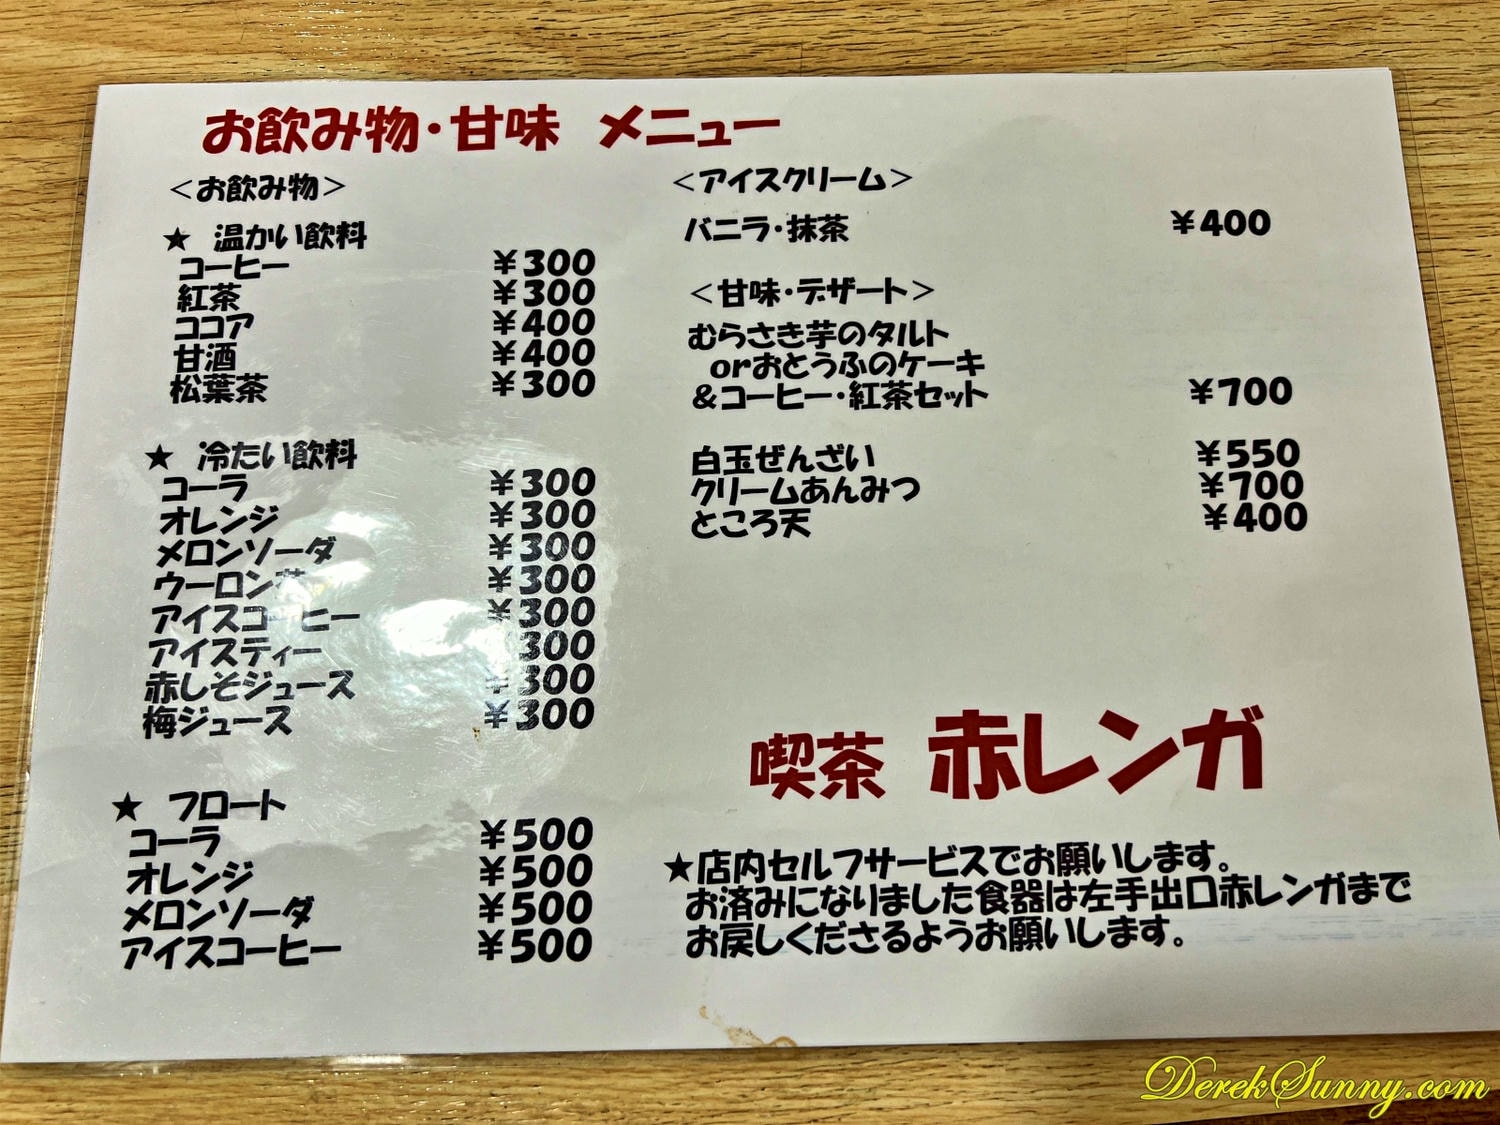 お飲み物・甘味 メニュー
＜お飲み物＞
★ 温かい飲料
コーヒー ￥300
紅茶 ￥300
ココア ￥400
甘酒 ￥400
松葉茶 ￥300
★ 冷たい飲料
コーラ ￥300
オレンジ ￥300
メロンソーダ ￥300
ウーロン茶 ￥300
アイスコーヒー ￥300
アイスティー 300
赤しそジュース ￥300
梅ジュース ￥300
★ フロート
コーラ ￥500
オレンジ ￥500
メロンソーダ ￥500
アイスコーヒー ￥500
＜アイスクリーム＞
バニラ・抹茶 ￥400
＜甘味・デザート＞
むらさき芋のタルト
orおとうふのケーキ
＆コーヒー・紅茶セット ￥700
白玉ぜんざい ￥550
クリームあんみつ ￥700
ところ天 ￥400
喫茶 赤レンガ
★店内セルフサービスでお願いします。
お済みになりました食器は左手出口赤レンガまで
お戻しくださるようお願いします。
DerekSunny.com